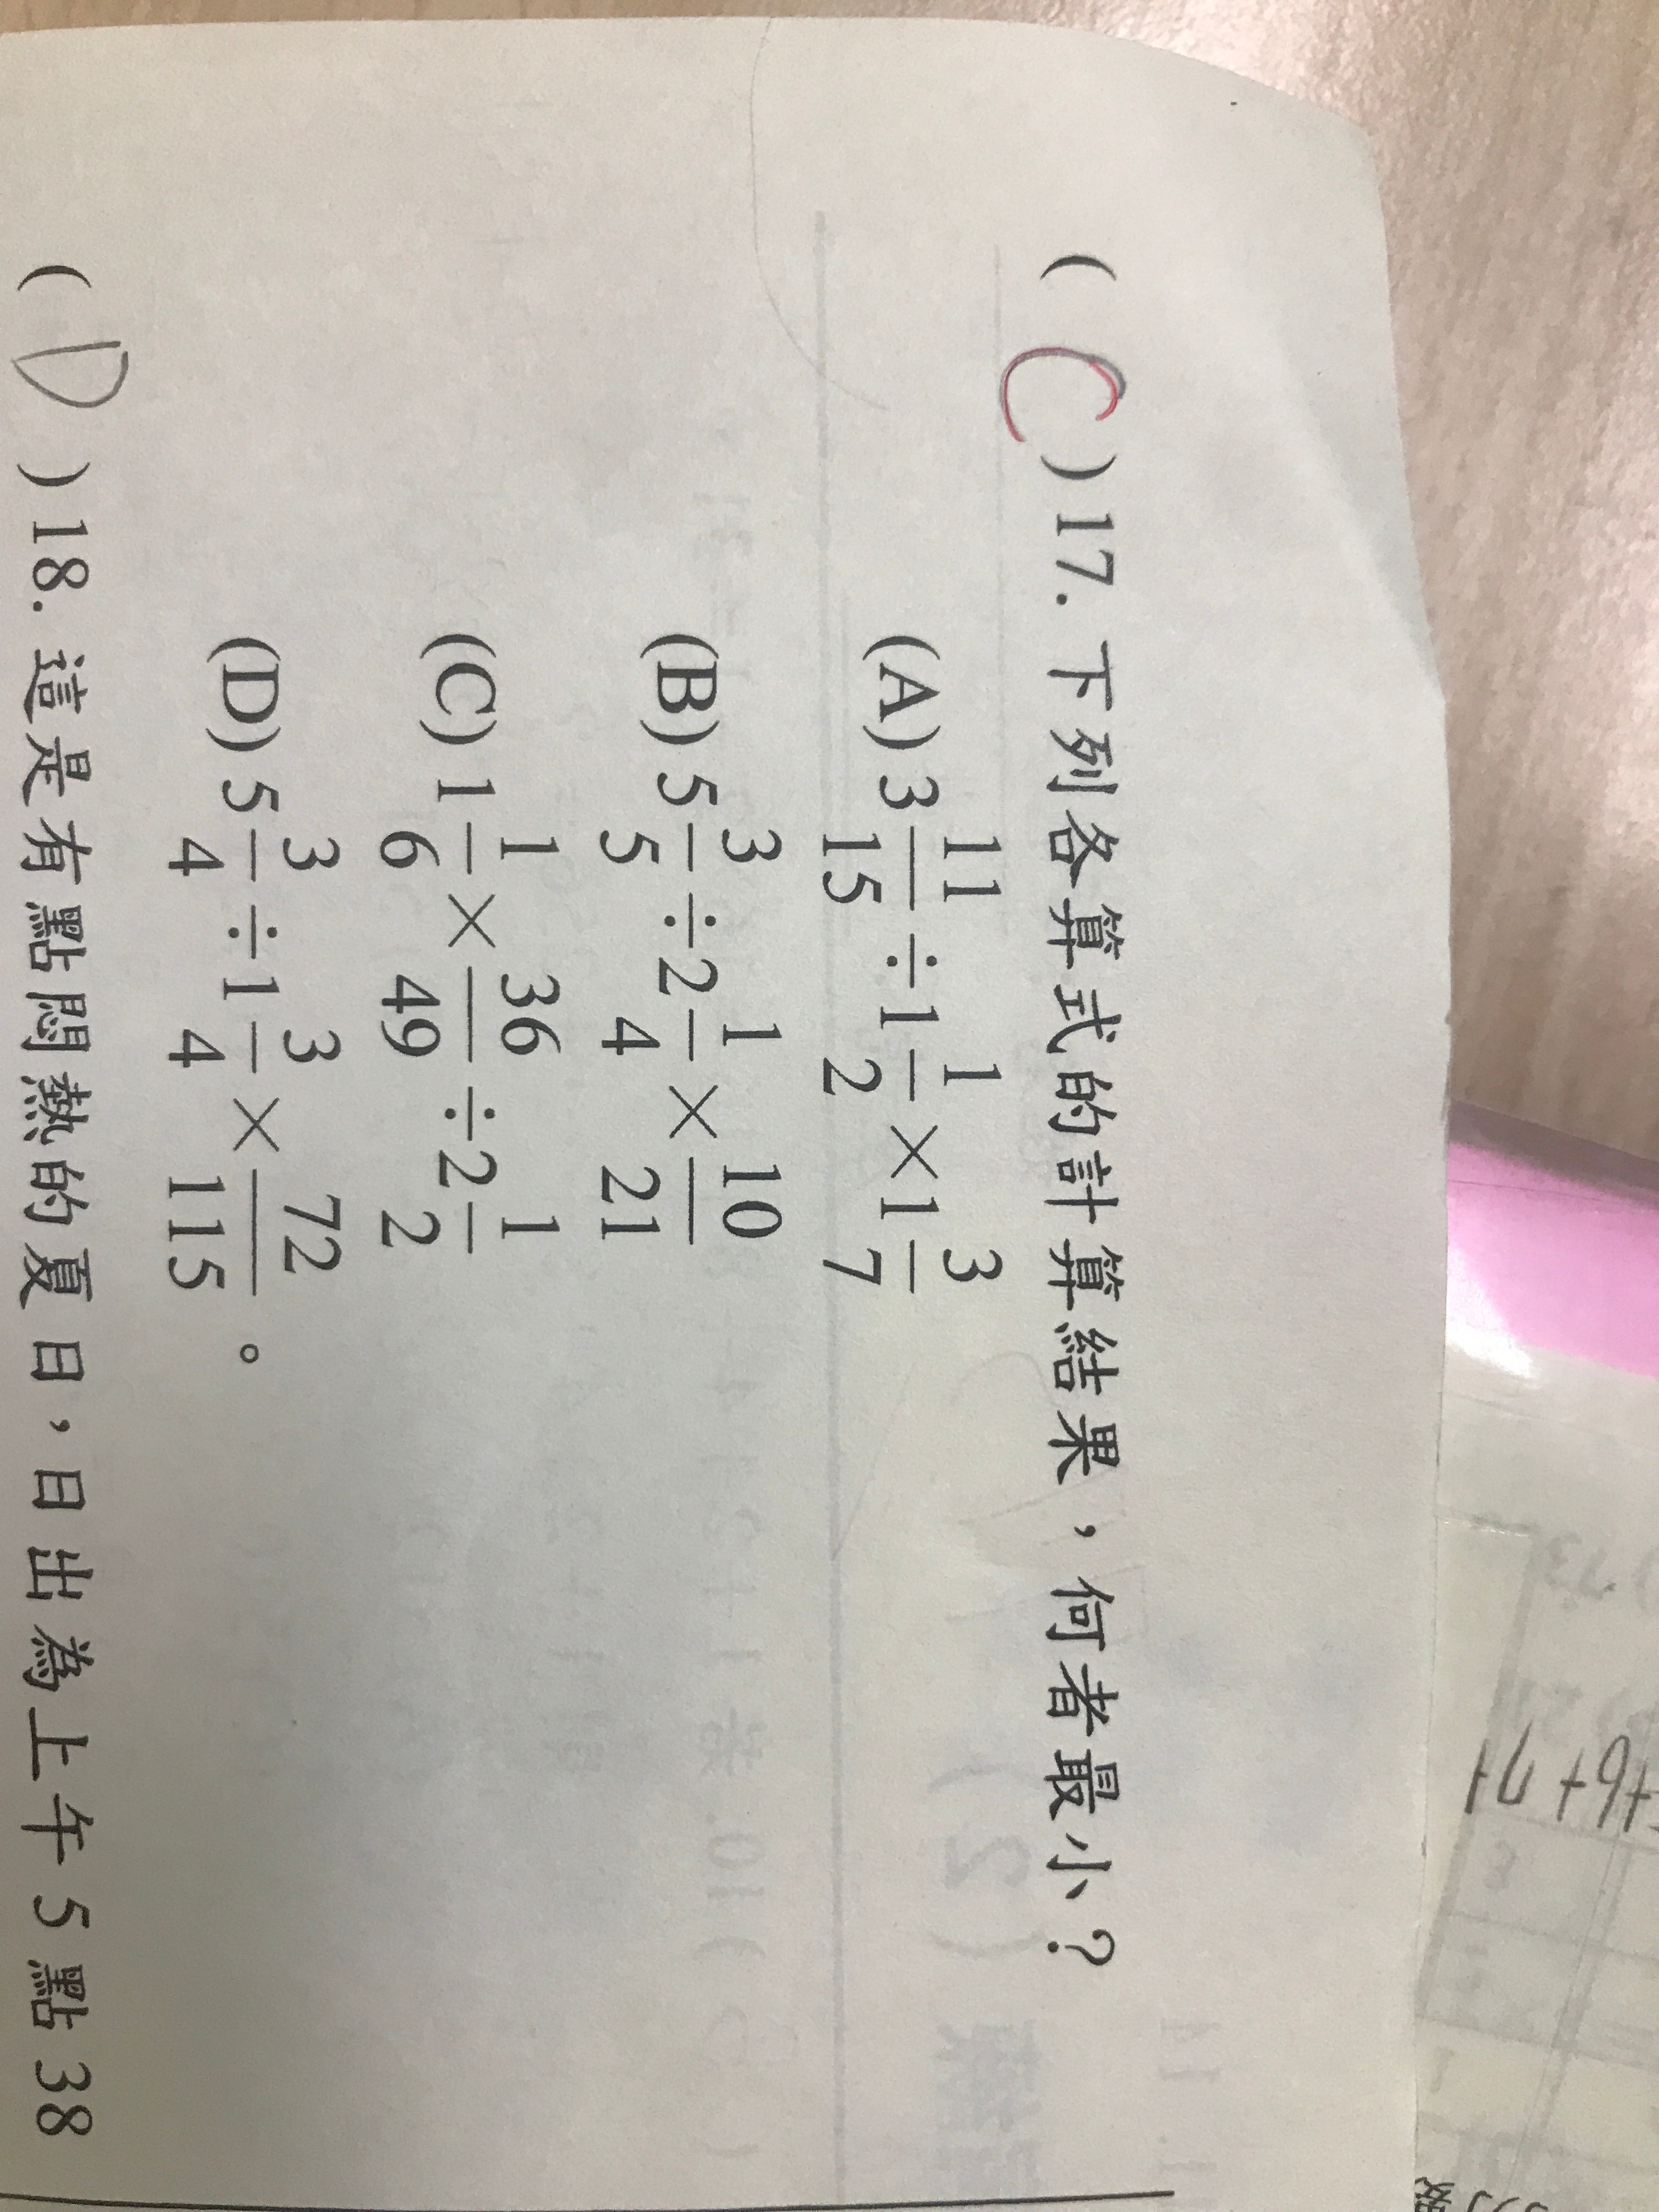 ( C ) 17. 下列各算式的計算結果，何者最小？
(A) 3 11/15 ÷ 1 1/2 × 1 3/7
(B) 5 3/5 ÷ 2 1/4 × 10/21
(C) 1 1/6 × 36/49 ÷ 2 1/2
(D) 5 3/4 ÷ 1 3/4 × 72/115 。
( D ) 18. 這是有點悶熱的夏日，日出為上午 5 點 38